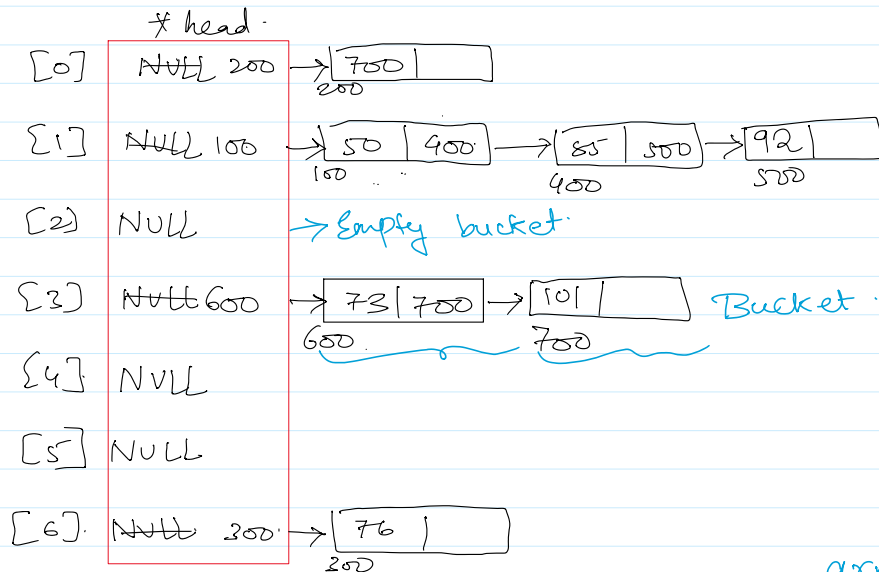 * head.
[0] NULL 200 → 700
200
[1] NULL 100 → 50 | 400. → 85 | 500 → 92
100 400 500
[2] NULL → Empty bucket.
[3] NULL 600 → 73 | 700 → 101 Bucket.
600. 700
[4] NULL
[5] NULL
[6]. NULL 300. → 76
300